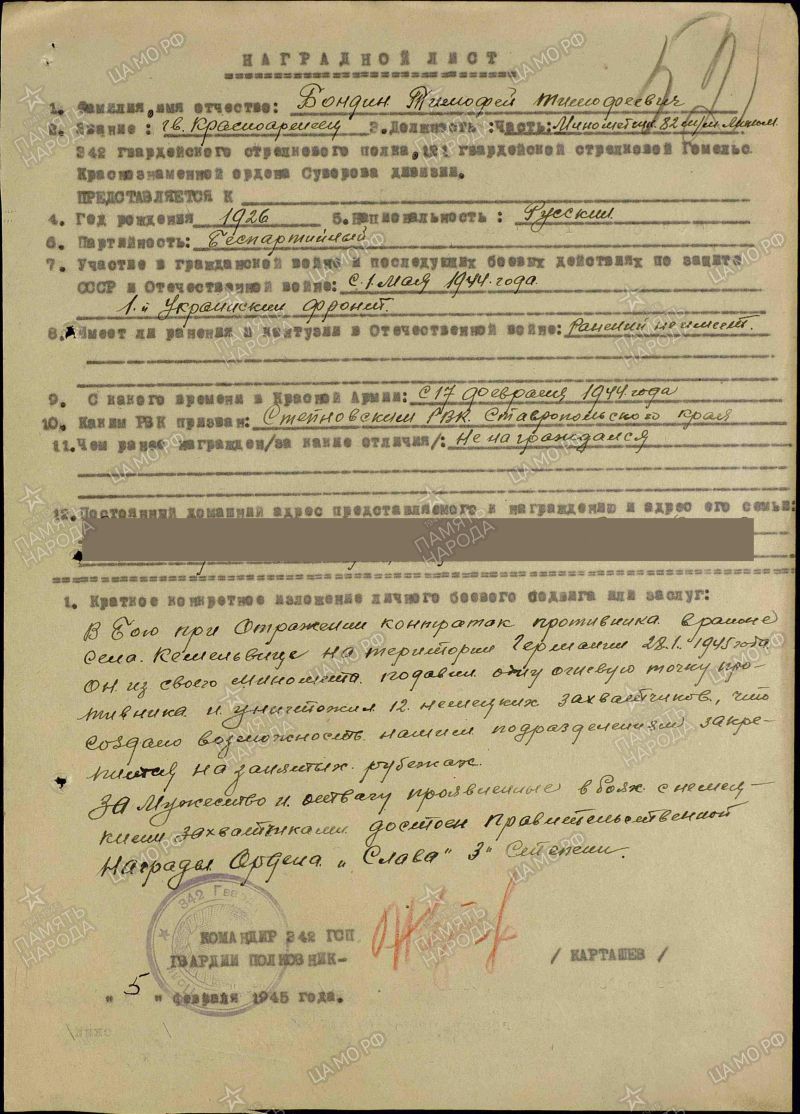 НАГРАДНОЙ ЛИСТ
1. Фамилия, имя отчество: Бондин Тимофей Тимофеевич
2. Звание: гв. Красноармеец 3. Должность: Часть: Минометчик 82 м/м
342 гвардейского стрелкового полка, 121 гвардейской стрелковой Гомельс.
Краснознаменной ордена Суворова дивизии.
ПРЕДСТАВЛЯЕТСЯ К
4. Год рождения 1926 5. Национальность: Русский
6. Партийность: Беспартийный
7. Участие в гражданской войне и последующих боевых действиях по защите
СССР и Отечественной войне: с 1 мая 1944 года
1-й Украинский фронт.
8. Имеет ли ранения и контузии в Отечественной войне: Ранений не имеет.
9. С какого времени в Красной Армии: с 17 февраля 1944 года
10. Каким РВК призван: Степновским РВК. Ставропольского края
11. Чем ранее награжден/за какие отличия/: не награждался
12. Постоянный домашний адрес представляемого к награждению и адрес его семьи:
1. Краткое конкретное изложение личного боевого подвига или заслуг:
В Бою при Отражении контратак противника в районе
села. Кемельвице на територии Германии 28.1.1945 года
он из своего миномета подавил одну огневую точку про-
тивника и уничтожил 12 немецких захватчиков, что
создало возможность нашим подразделениям закре-
пится на занятых рубежах.
За Мужество и отвагу проявленные в боях с немец-
кими захватчиками достоен правительственной
Награды Ордена „Слава" 3" Степени.
342 Гвар
КОМАНДИР 342 ГСП
ГВАРДИИ ПОЛКОВНИК-
/ КАРТАШЕВ /
" 5 " февраля 1945 года.
ПАМЯТЬ НАРОДА
ЦАМО РФ